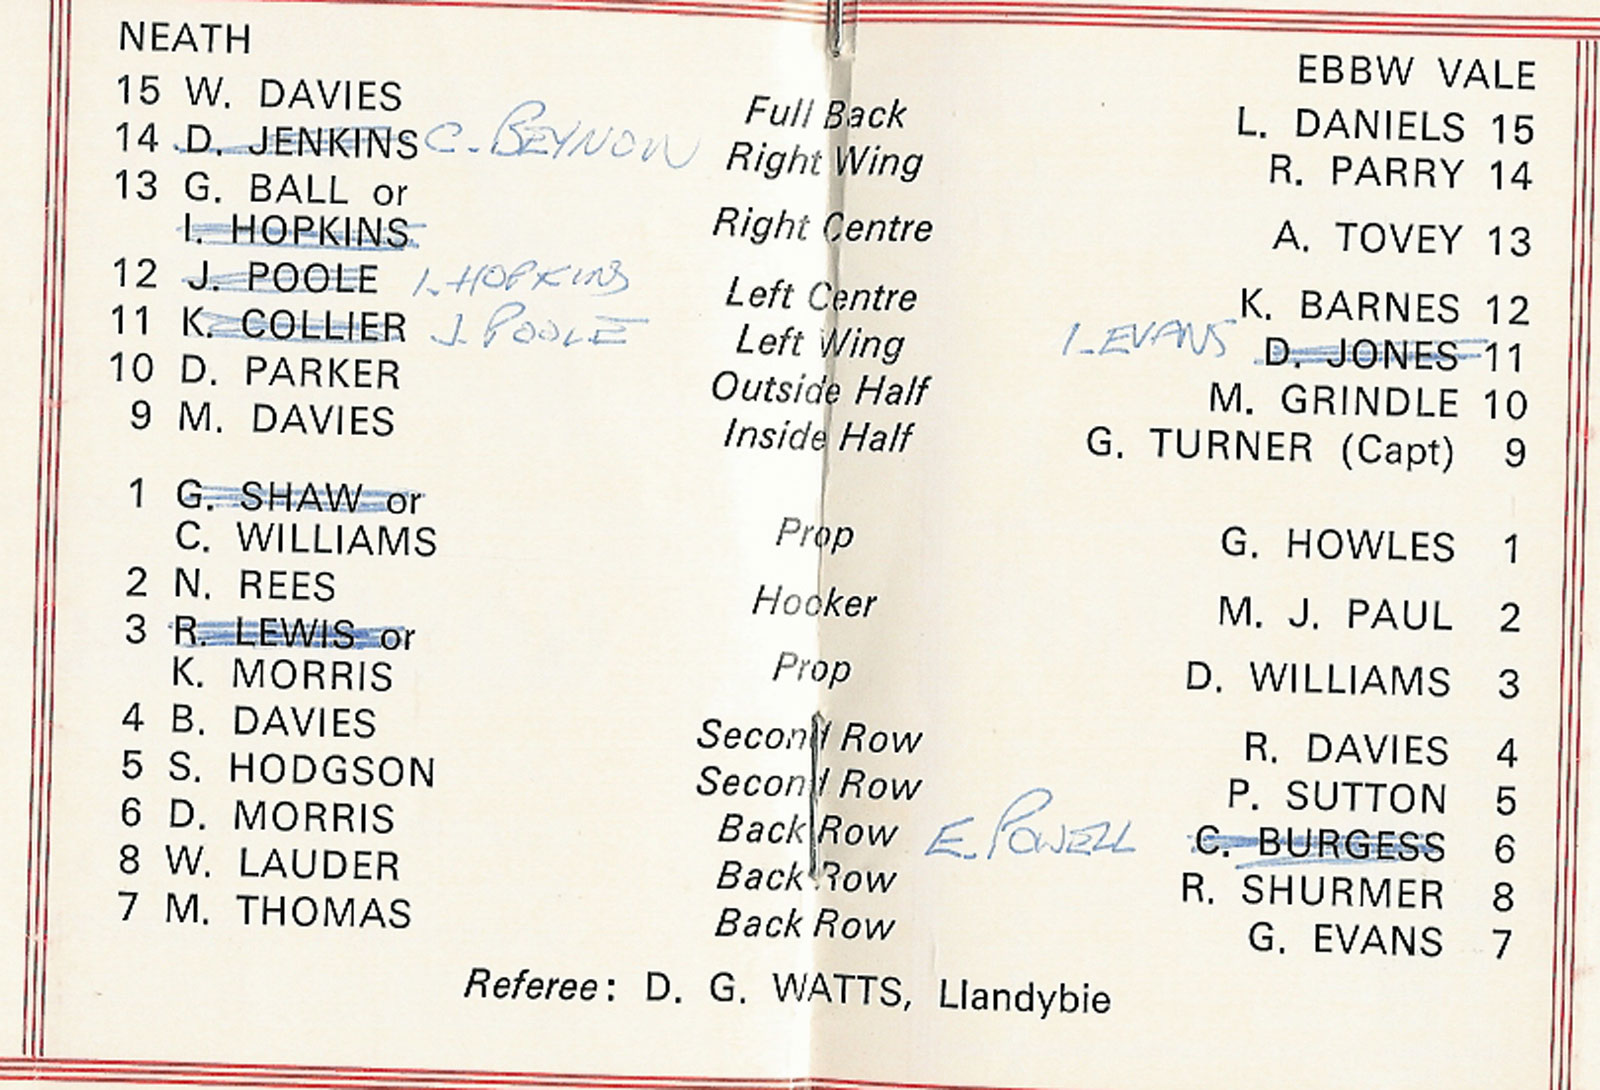 NEATH EBBW VALE
15 W. DAVIES Full Back L. DANIELS 15
14 D. JENKINS C. BEYNON Right Wing R. PARRY 14
13 G. BALL or
I. HOPKINS Right Centre A. TOVEY 13
12 J. POOLE I. HOPKINS Left Centre K. BARNES 12
11 K. COLLIER J. POOLE Left Wing I. EVANS D. JONES 11
10 D. PARKER Outside Half M. GRINDLE 10
9 M. DAVIES Inside Half G. TURNER (Capt) 9
1 G. SHAW or
C. WILLIAMS Prop G. HOWLES 1
2 N. REES Hooker M. J. PAUL 2
3 R. LEWIS or
K. MORRIS Prop D. WILLIAMS 3
4 B. DAVIES Second Row R. DAVIES 4
5 S. HODGSON Second Row P. SUTTON 5
6 D. MORRIS Back Row E. POWELL C. BURGESS 6
8 W. LAUDER Back Row R. SHURMER 8
7 M. THOMAS Back Row G. EVANS 7
Referee: D. G. WATTS, Llandybie